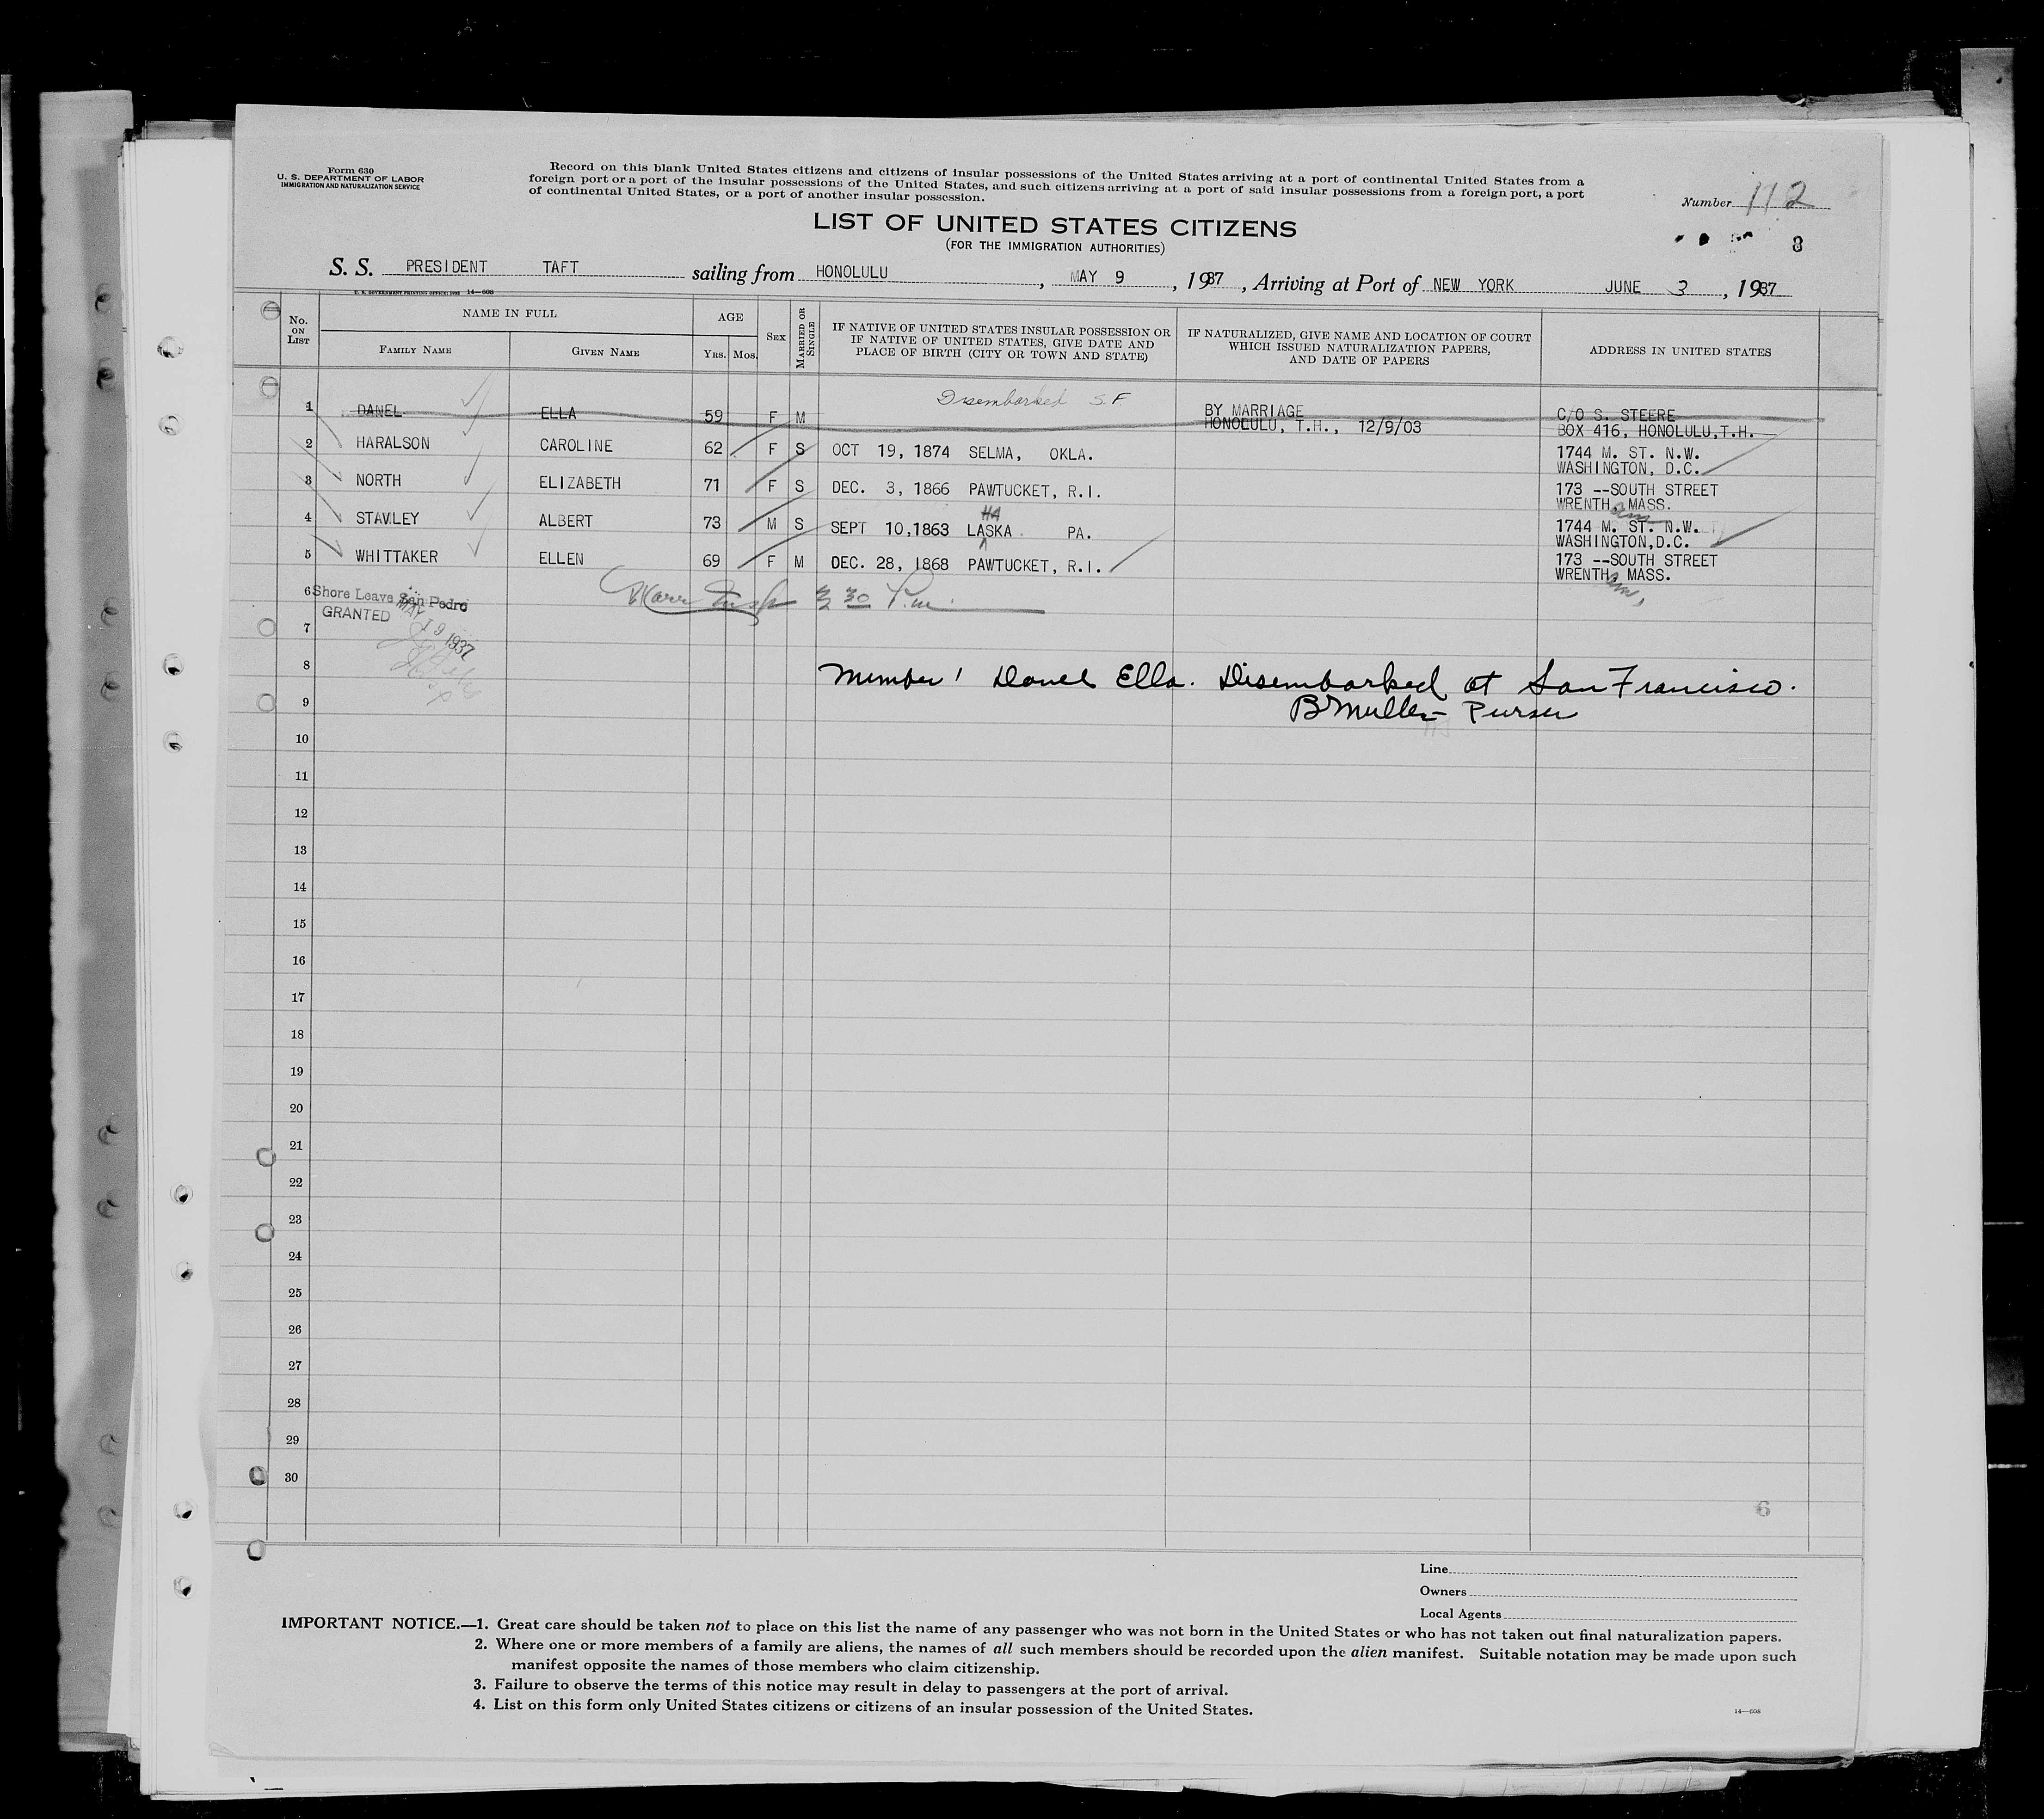 Form 630
U. S. DEPARTMENT OF LABOR
IMMIGRATION AND NATURALIZATION SERVICE
Record on this blank United States citizens and citizens of insular possessions of the United States arriving at a port of continental United States from a
foreign port or a port of the insular possessions of the United States, and such citizens arriving at a port of said insular possessions from a foreign port, a port
of continental United States, or a port of another insular possession.
Number 112
8
LIST OF UNITED STATES CITIZENS
(FOR THE IMMIGRATION AUTHORITIES)
S. S. PRESIDENT TAFT sailing from HONOLULU, MAY 9, 1937, Arriving at Port of NEW YORK JUNE 3, 1937
No. ON LIST
NAME IN FULL
FAMILY NAME
GIVEN NAME
AGE
YRS. MOS.
SEX
MARRIED OR SINGLE
IF NATIVE OF UNITED STATES INSULAR POSSESSION OR
IF NATIVE OF UNITED STATES, GIVE DATE AND
PLACE OF BIRTH (CITY OR TOWN AND STATE)
IF NATURALIZED, GIVE NAME AND LOCATION OF COURT
WHICH ISSUED NATURALIZATION PAPERS,
AND DATE OF PAPERS
ADDRESS IN UNITED STATES
Disembarked S.F
1 DANEL ELLA 59 F M BY MARRIAGE C/O S. STEERE
HONOLULU, T.H., 12/9/03 BOX 416, HONOLULU,T.H.
2 HARALSON CAROLINE 62 F S OCT 19, 1874 SELMA, OKLA. 1744 M. ST. N.W.
WASHINGTON, D.C.
3 NORTH ELIZABETH 71 F S DEC. 3, 1866 PAWTUCKET, R.I. 173 --SOUTH STREET
WRENTHam MASS.
HA
4 STAVLEY ALBERT 73 M S SEPT 10,1863 LASKA PA. 1744 M. ST. N.W.
WASHINGTON,D.C.
5 WHITTAKER ELLEN 69 F M DEC. 28, 1868 PAWTUCKET, R.I. 173 --SOUTH STREET
WRENTHam, MASS.
6 Shore Leave San Pedro
GRANTED MAY 19 1937
3 30 P.m.
7
8 Member 1 Danel Ella. Disembarked at San Francisco.
9 B Muller - Purser
10
11
12
13
14
15
16
17
18
19
20
21
22
23
24
25
26
27
28
29
30
6
Line
Owners
Local Agents
IMPORTANT NOTICE.—1. Great care should be taken not to place on this list the name of any passenger who was not born in the United States or who has not taken out final naturalization papers.
2. Where one or more members of a family are aliens, the names of all such members should be recorded upon the alien manifest. Suitable notation may be made upon such
manifest opposite the names of those members who claim citizenship.
3. Failure to observe the terms of this notice may result in delay to passengers at the port of arrival.
4. List on this form only United States citizens or citizens of an insular possession of the United States.
14—608